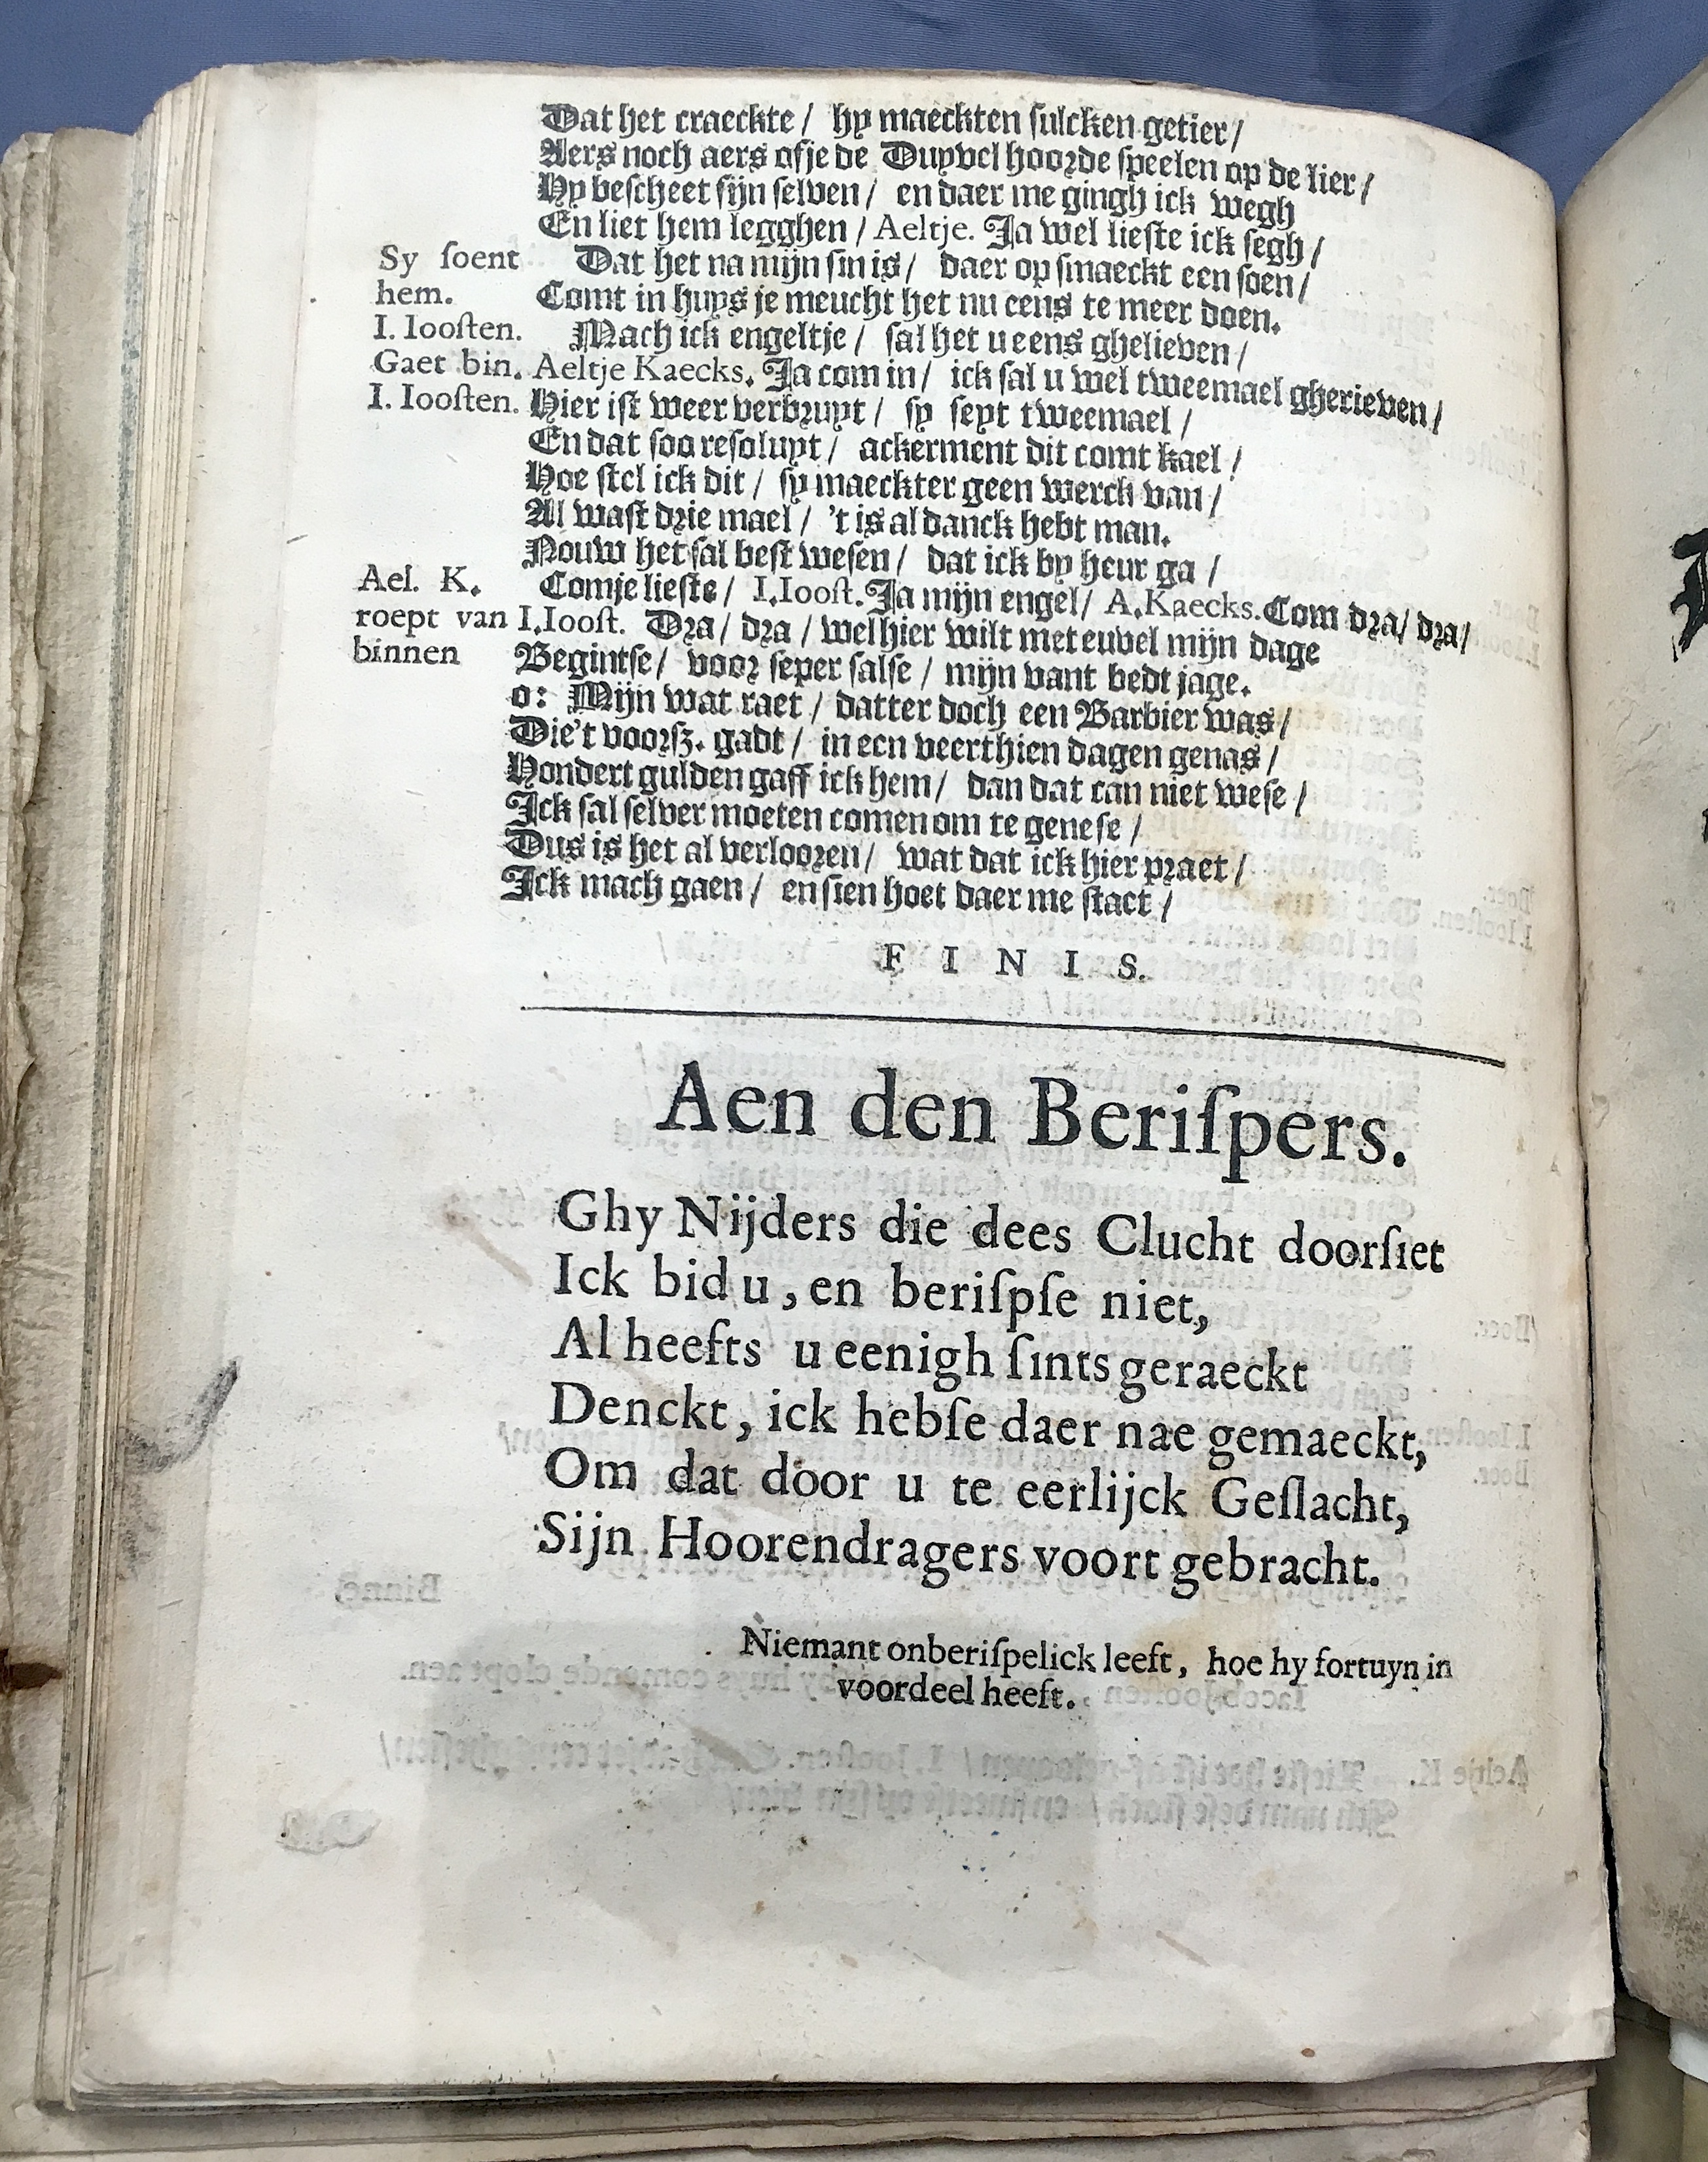 Dat het craeckte / hy maeckten ſulcken getier /
Aers noch aers ofje de Duyvel hoorde ſpeelen op de lier /
Hy beſcheet ſijn ſelven / en daer me gingh ick wegh
En liet hem legghen / Aeltje. Ja wel lieſte ick ſegh /
Sy ſoent Dat het na mijn ſin is / daer op ſmaeckt een ſoen /
hem. Comt in huys je meucht het nu eens te meer doen.
I. Iooſten. Mach ick engeltje / ſal het u eens ghelieven /
Gaet bin. Aeltje Kaecks. Ja com in / ick ſal u wel tweemael gherieven /
I. Iooſten. Hier iſt weer verbruyt / ſy ſeyt tweemael /
En dat ſoo reſoluyt / ackerment dit comt kael /
Hoe ſtel ick dit / ſy maeckter geen werck van /
Al waſt drie mael / 't is al danck hebt man.
Nouw het ſal beſt weſen / dat ick by heur ga /
Ael. K. Comje lieſte / I. Iooſt. Ja mijn engel / A. Kaecks. Com dra / dra /
roept van I. Iooſt. Dra / dra / wel hier wilt met euvel mijn dage
binnen Begintſe / voor ſeper ſalſe / mijn vant bedt jage.
o: Mijn wat raet / datter doch een Barbier was /
Die't voorſz. gadt / in een veerthien dagen genas /
Hondert gulden gaff ick hem / dan dat can niet weſe /
Ick ſal ſelver moeten comen om te geneſe /
Dus is het al verlooren / wat dat ick hier praet /
Ick mach gaen / en ſien hoet daer me ſtaet /
F I N I S.
Aen den Beriſpers.
Ghy Nijders die dees Clucht doorſiet
Ick bid u, en beriſpſe niet,
Al heefts u eenigh ſints geraeckt
Denckt, ick hebſe daer nae gemaeckt,
Om dat door u te eerlijck Geſlacht,
Sijn Hoorendragers voort gebracht.
Niemant onberiſpelick leeft, hoe hy fortuyn in
voordeel heeft.